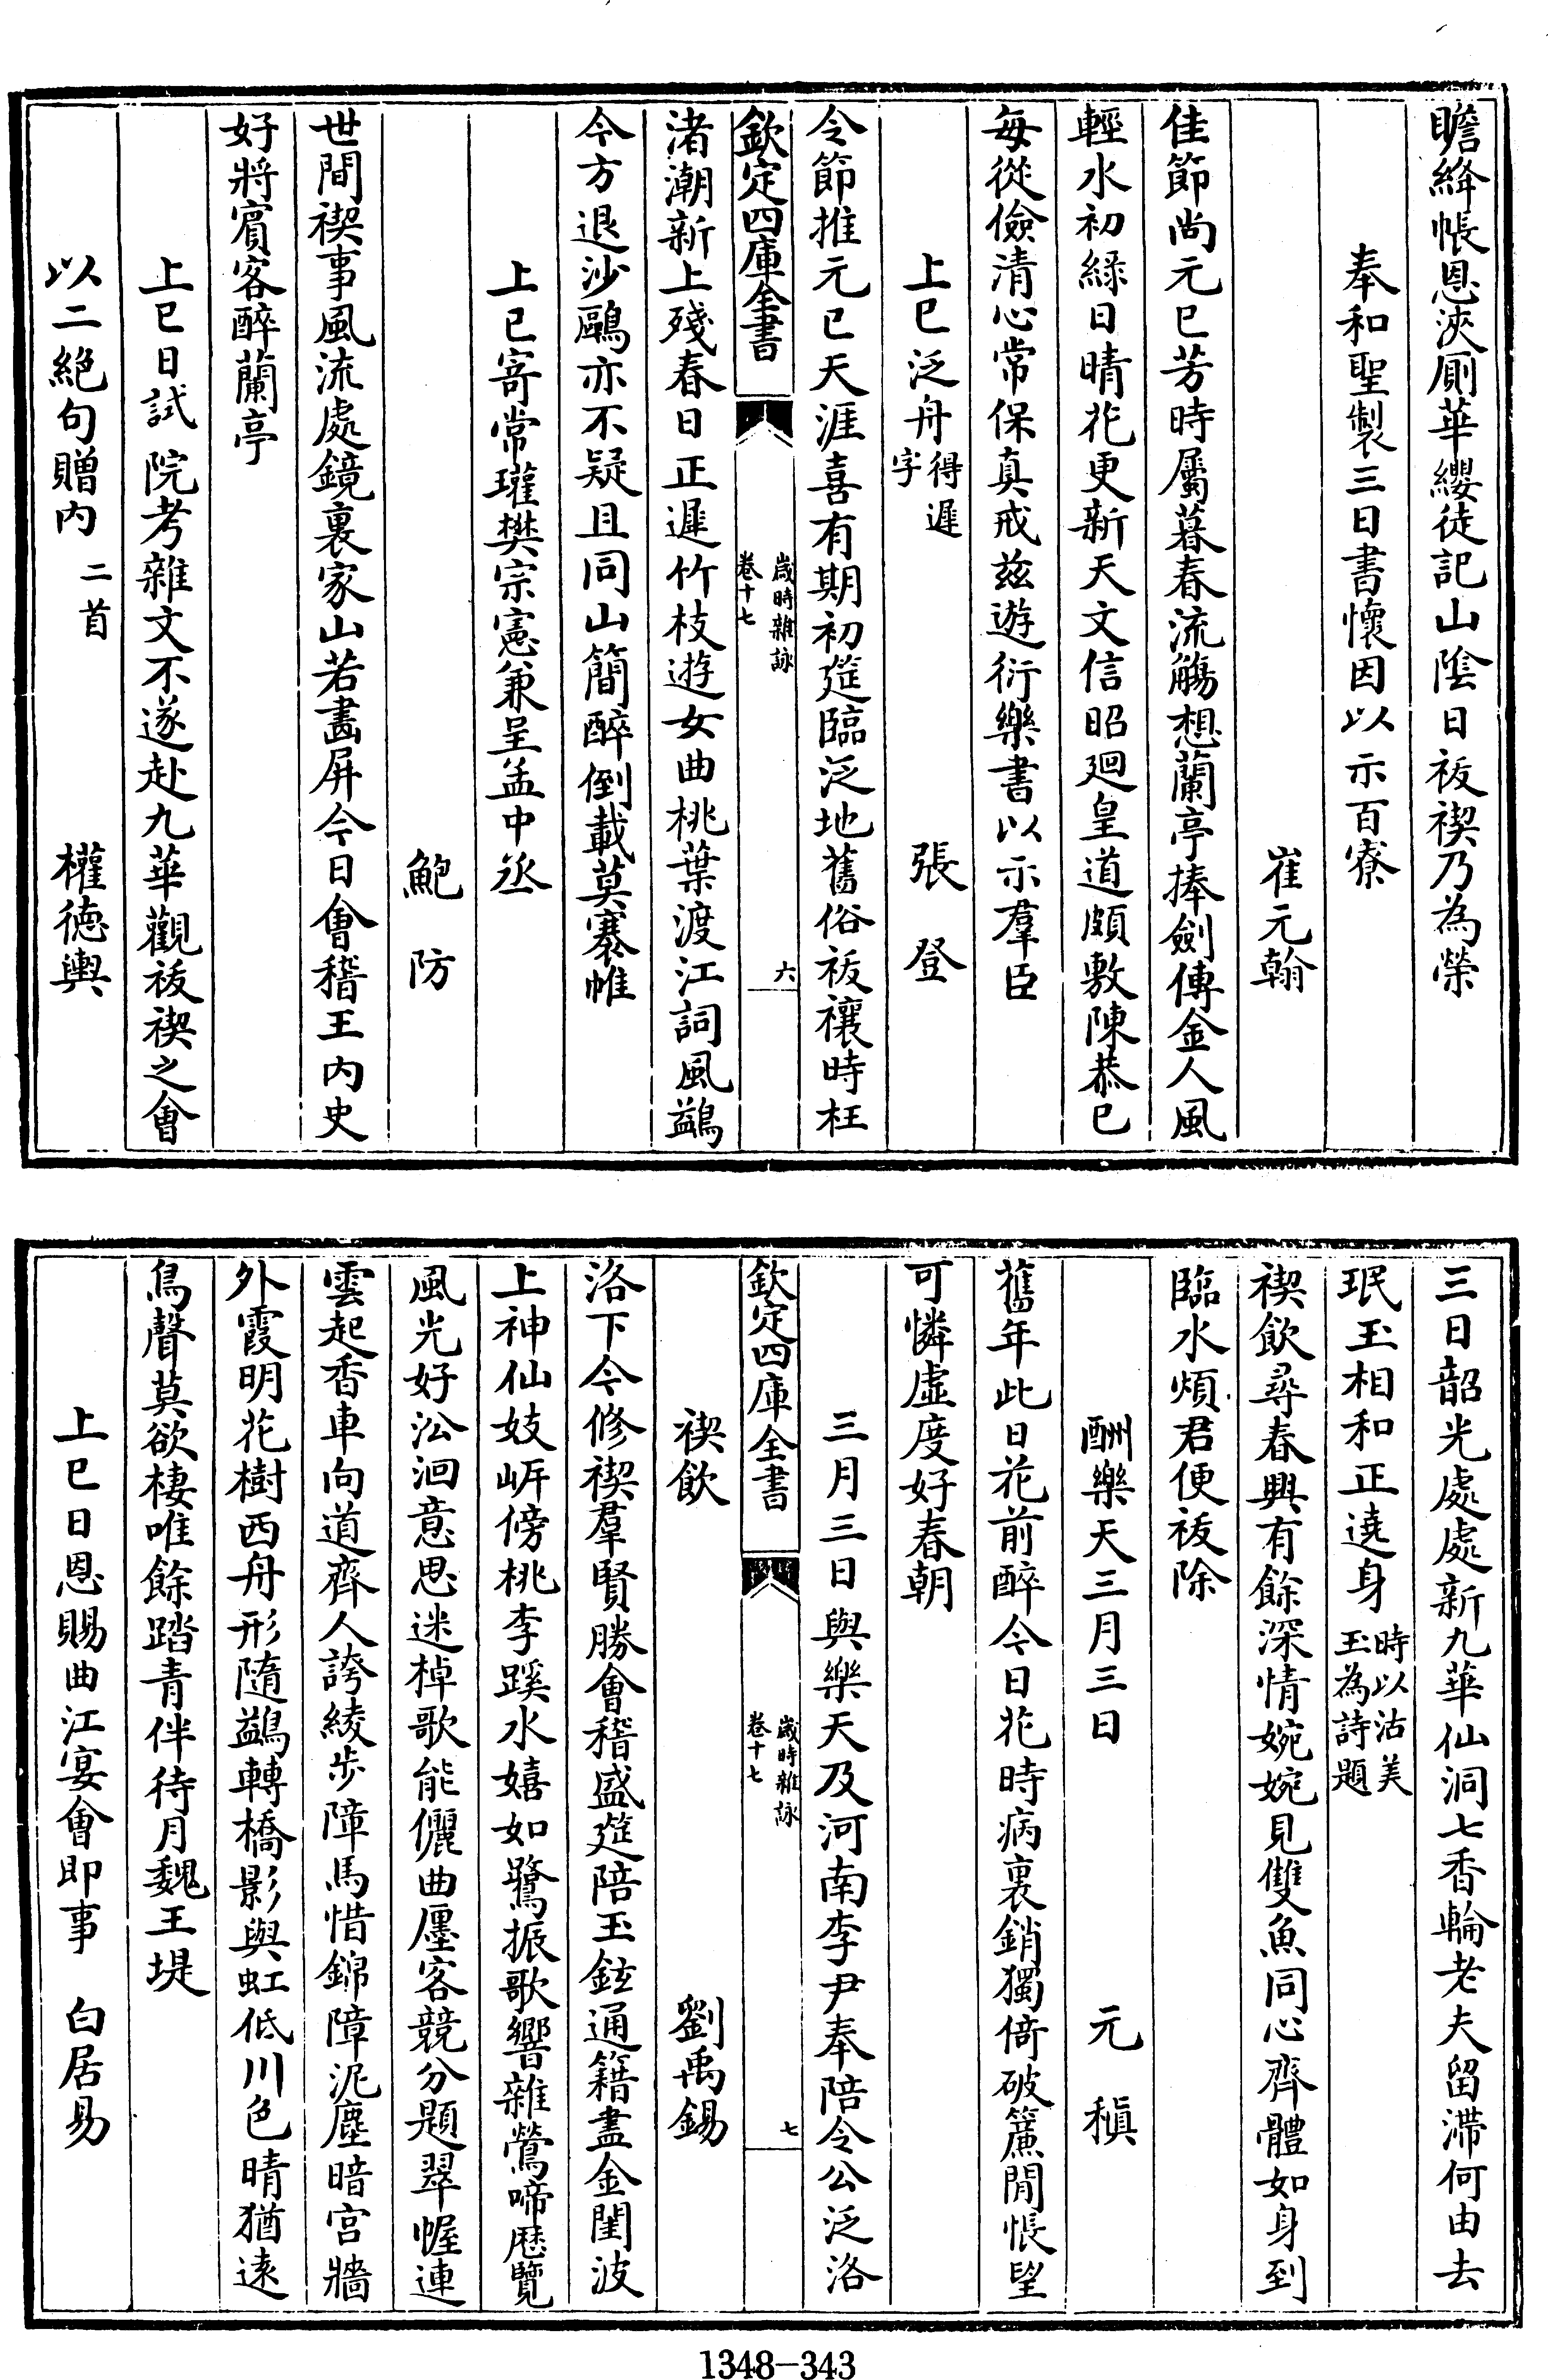 瞻絳帳恩浹厠華纓徒記山陰日祓禊乃為榮
奉和聖製三日書懷因以示百寮
崔元翰
佳節尚元巳芳時屬暮春流觴想蘭亭捧劍傳金人風
輕水初綠日晴花更新天文信昭廻皇道頗敷陳恭已
每從儉清心常保真戒兹遊衍樂書以示羣臣
上巳泛舟得遲字 張登
令節推元巳天涯喜有期初筵臨泛地舊俗祓禳時枉
欽定四庫全書 歲時雜詠卷十七 六
渚潮新上殘春日正遲竹枝遊女曲桃葉渡江詞風鷁
今方退沙鷗亦不疑且同山簡醉倒載莫褰帷
上巳寄常瓘樊宗憲兼呈孟中丞
鮑防
世間禊事風流處鏡裏家山若畫屏今日會稽王内史
好將賓客醉蘭亭
上巳日試院考雜文不遂赴九華觀祓禊之會
以二絶句贈内二首 權德輿
三日韶光處處新九華仙洞七香輪老夫留滯何由去
珉玉相和正遶身時以沽美玉為詩題
禊飲尋春興有餘深情婉婉見雙魚同心齊體如身到
臨水煩君便祓除
酬樂天三月三日 元稹
舊年此日花前醉今日花時病裏銷獨倚破簾閒悵望
可憐虛度好春朝
三月三日與樂天及河南李尹奉陪令公泛洛
欽定四庫全書 歲時雜詠卷十七 七
禊飲 劉禹錫
洛下今修禊羣賢勝會稽盛筵陪玉鉉通籍盡金閨波
上神仙妓岍傍桃李蹊水嬉如鷺振歌響雜鶯啼歷覽
風光好㳂洄意思迷棹歌能儷曲墨客競分題翠幄連
雲起香車向道齊人誇綾步障馬惜錦障泥塵暗宫牆
外霞明花樹西舟形隨鷁轉橋影與虹低川色晴猶遠
鳥聲莫欲棲唯餘踏青伴待月魏王堤
上巳日恩賜曲江宴會即事 白居易
1348-343